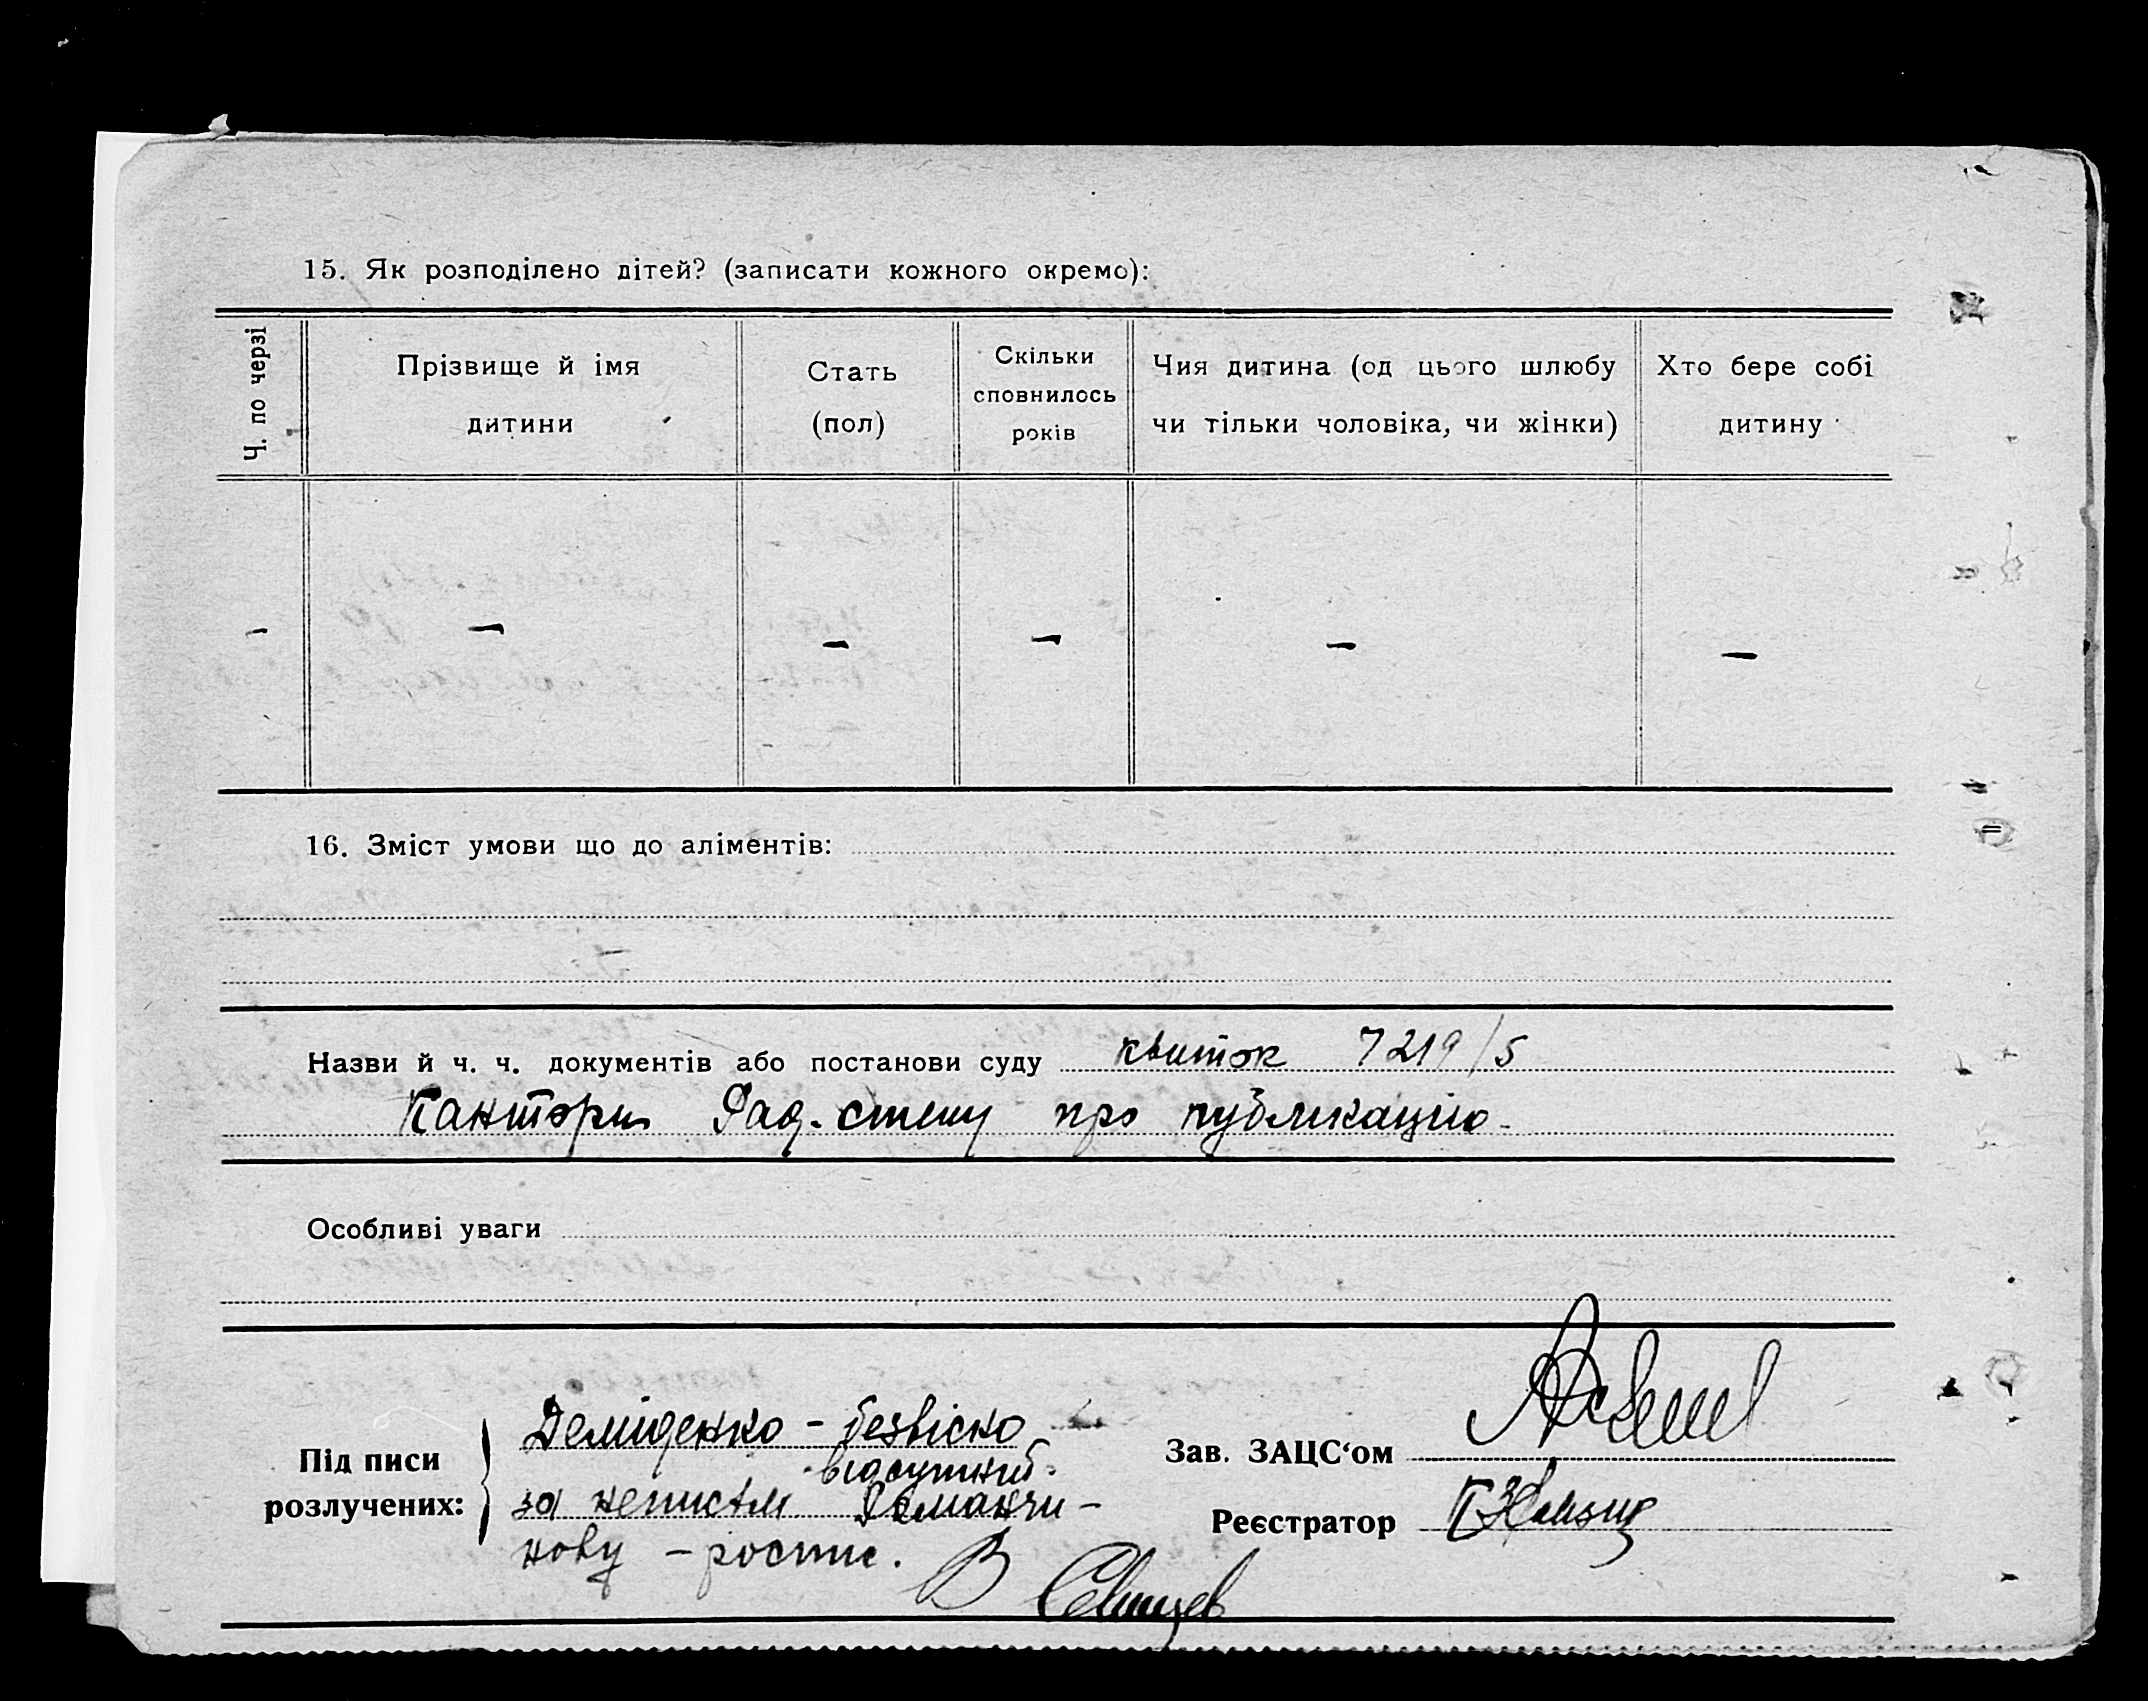 15. Як розподілено дітей? (записати кожного окремо):
Ч. по черзі
Прізвище й імя
дитини
Стать
(пол)
Скільки
сповнилось
років
Чия дитина (од цього шлюбу
чи тільки чоловіка, чи жінки)
Хто бере собі
дитину
– – – – – –
16. Зміст умови що до аліментів:
Назви й ч. ч. документів або постанови суду квиток 7219/5
Канторы Рад. степу про публикацию
Особливі уваги
Під писи
розлучених:
Деміденко – безвісно
відсутний.
за неписьм
нову – роспис.
Зав. ЗАЦС‘ом
Реєстратор